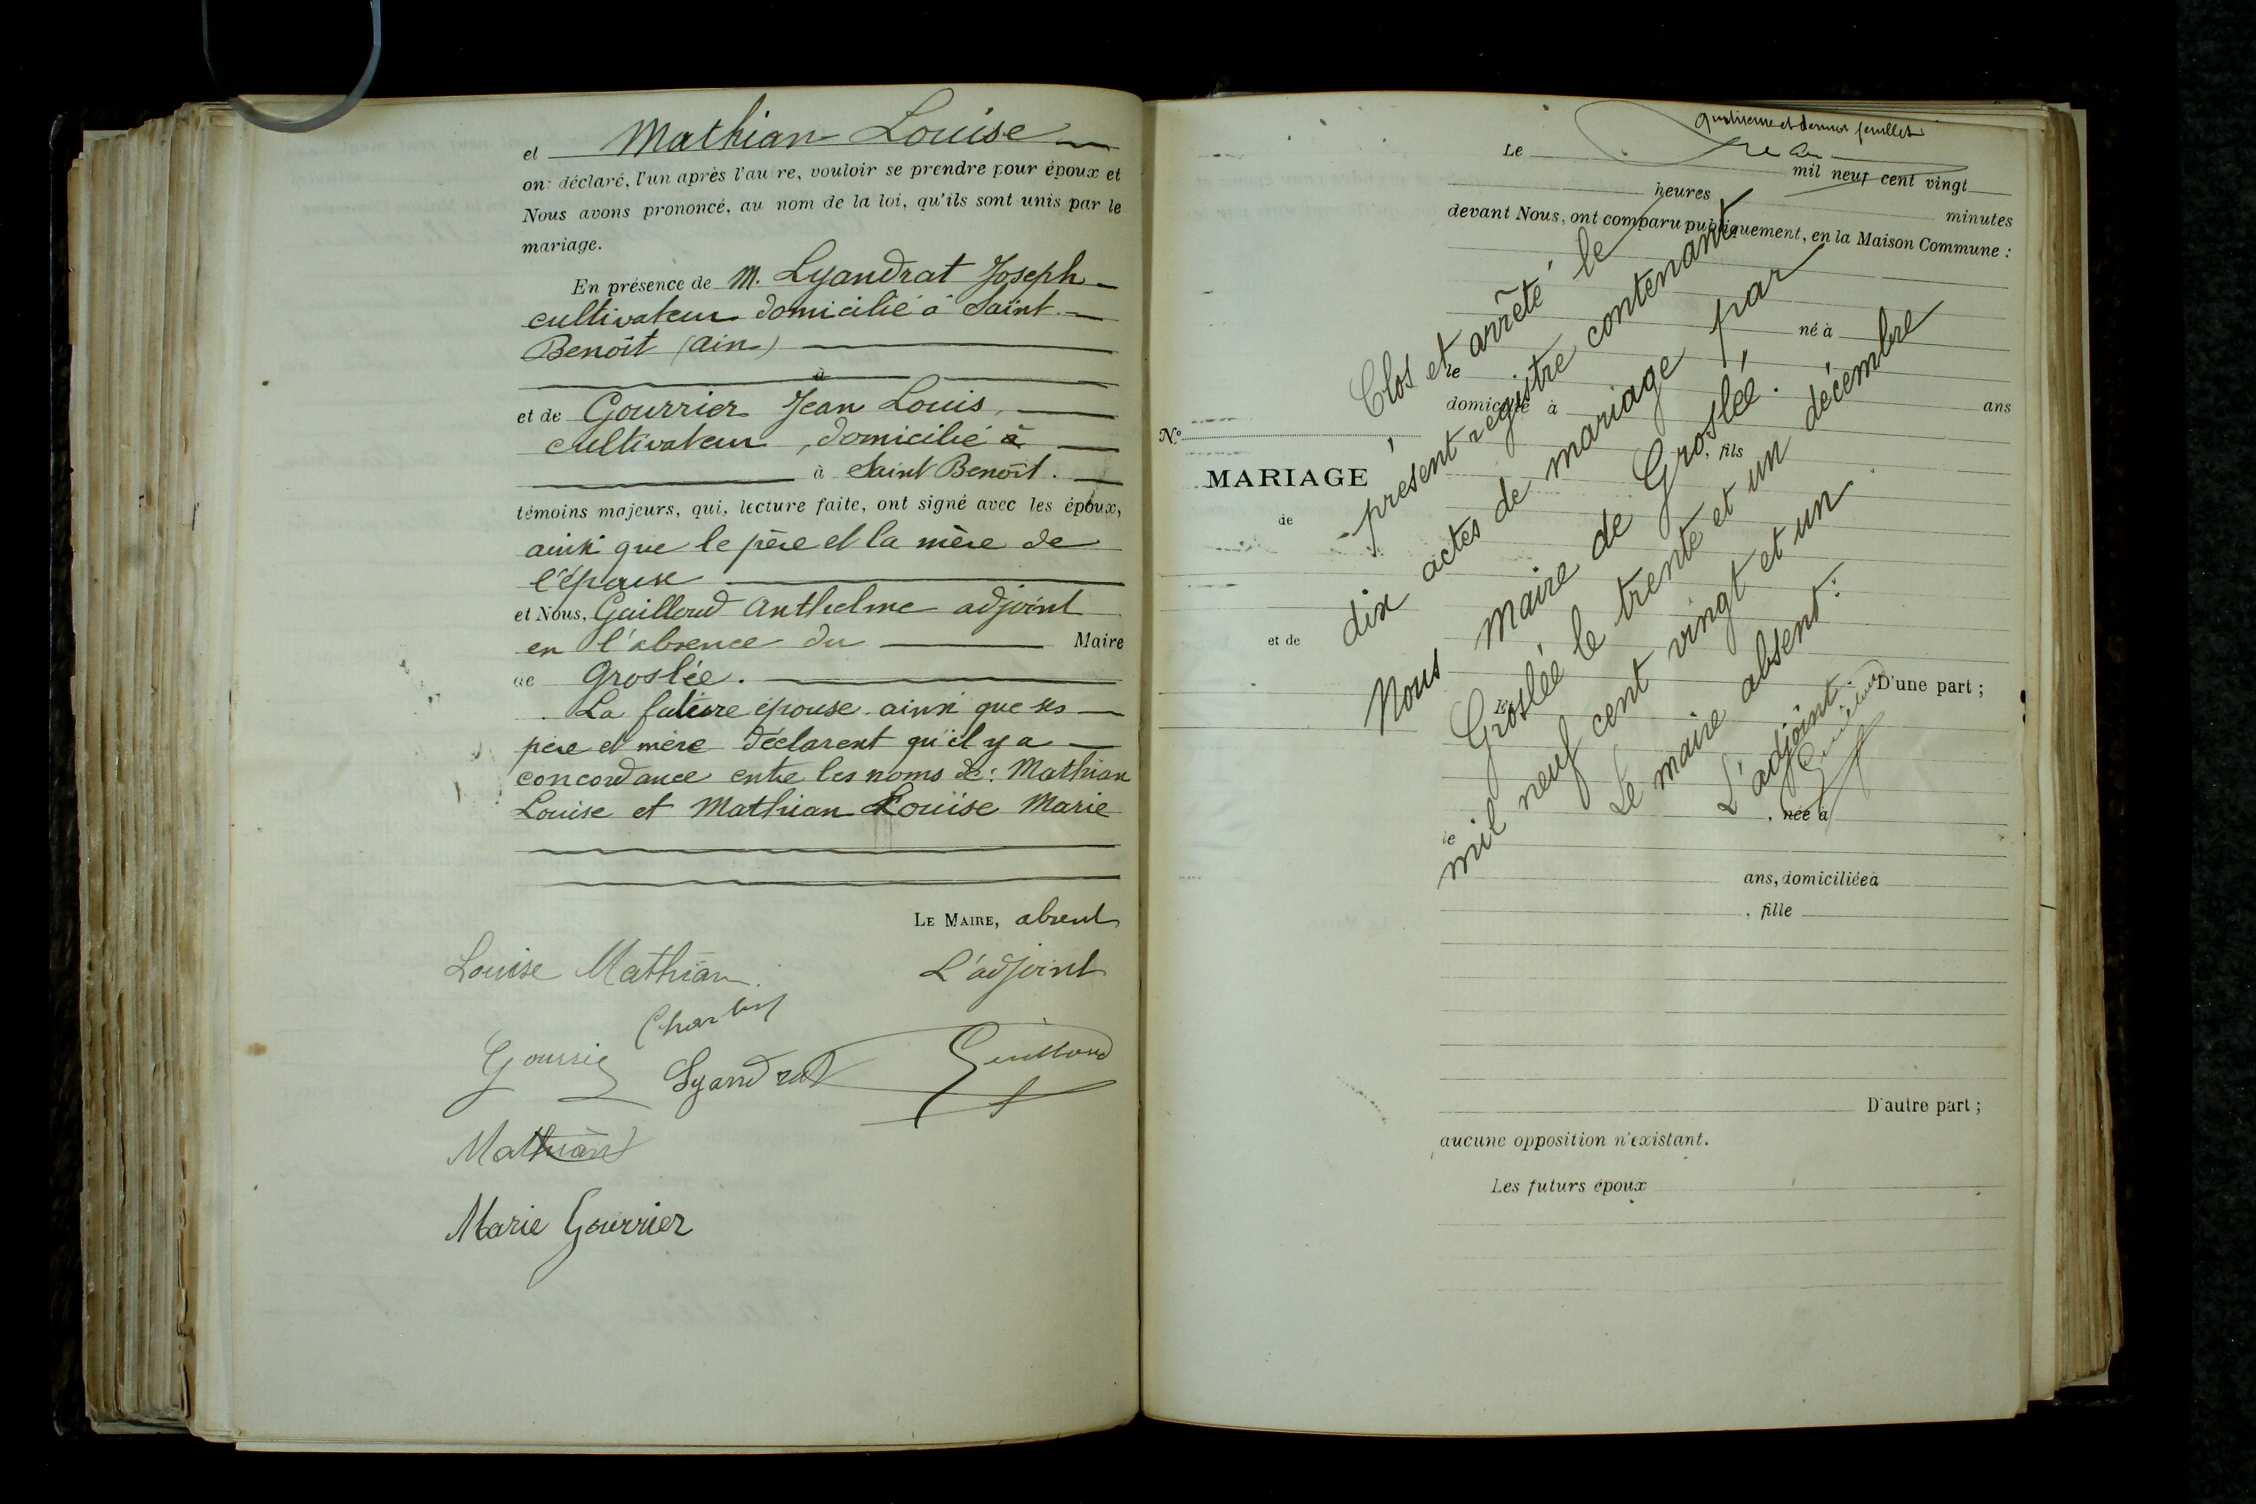 et Mathian Louise
ont déclaré, l'un après l'autre, vouloir se prendre pour époux et
Nous avons prononcé, au nom de la loi, qu'ils sont unis par le
mariage.
En présence de M. Lyandrat Joseph
cultivateur domicilié à Saint
Benoît (Ain)
à
et de Gourrier Jean Louis,
cultivateur, domicilié à
à Saint Benoît.
témoins majeurs, qui, lecture faite, ont signé avec les époux,
ainsi que le père et la mère de
l'épouse
et Nous, Guilloud Anthelme adjoint
en l'absence du Maire
de Groslée.
La future épouse ainsi que ses
père et mère déclarent qu'il y a
concordance entre les noms de : Mathian
Louise et Mathian Louise Marie
LE MAIRE, absent
Louise Mathian.
L'adjoint
Gourrier
Lyandrat
Guilloud
Mathian
Marie Gourrier
quatrième et dernier feuillet
Le
mil neuf cent vingt
heures
minutes
devant Nous, ont comparu publiquement, en la Maison Commune :
né à
le
domicilié à
ans
fils
N°
MARIAGE
de
et de
Clos et arrêté le
présent registre contenant
dix actes de mariage par
Nous Maire de Groslée.
Groslée le trente et un décembre
mil neuf cent vingt et un
Le maire absent :
L'adjoint.
Guilloud
D'une part ;
Et
, née à
le
ans, domiciliée à
, fille
D'autre part ;
aucune opposition n'existant.
Les futurs époux